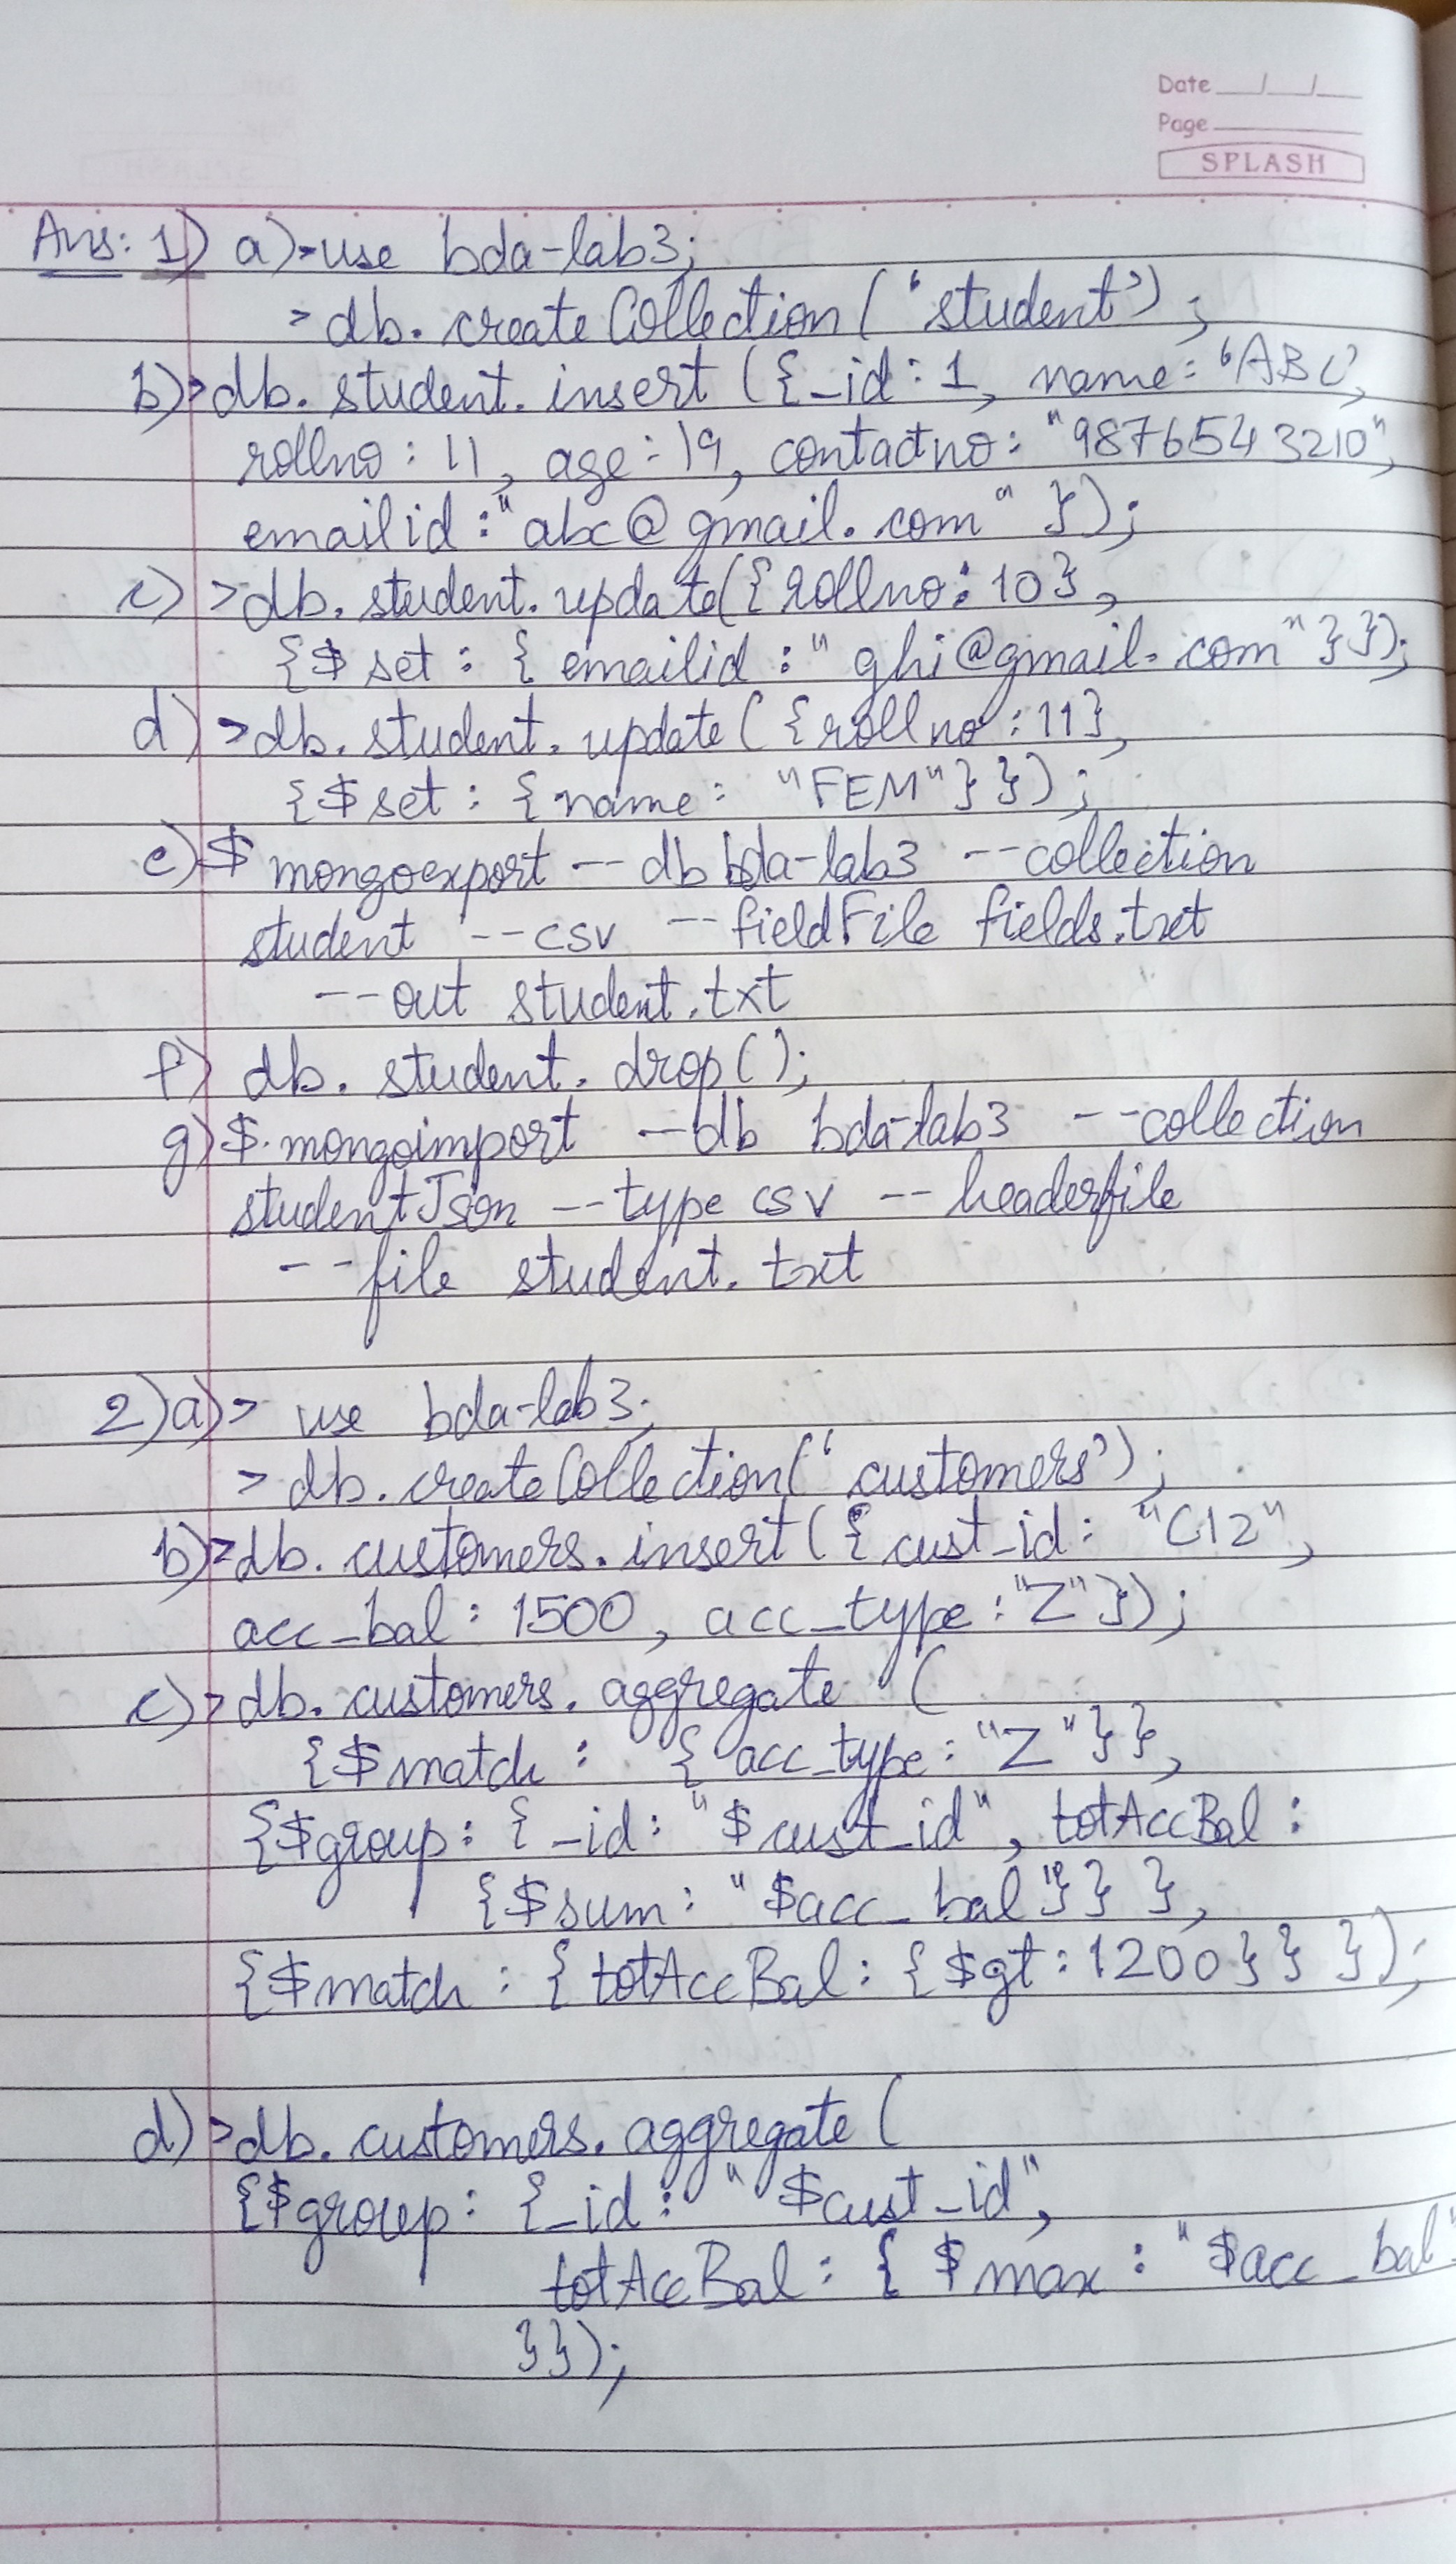 Date __/__/__
Page ______
SPLASH
Ans: 1) a) > use bda-lab3;
> db.createCollection('student');
b) > db.student.insert({_id:1, name:'ABC',
rollno:11, age:19, contactno:"9876543210",
emailid:"abc@gmail.com"});
c) > db.student.update({rollno:10},
{$set:{emailid:"ghi@gmail.com"}});
d) > db.student.update({rollno:11},
{$set:{name:"FEM"}});
e) $ mongoexport --db bda-lab3 --collection
student --csv --fieldFile fields.txt
--out student.txt
f) db.student.drop();
g) $ mongoimport --db bda-lab3 --collection
studentJson --type csv --headerfile
--file student.txt
2) a) > use bda-lab3;
> db.createCollection('customers');
b) > db.customers.insert({cust_id:"C12",
acc_bal:1500, acc_type:"Z"});
c) > db.customers.aggregate(
{$match: {acc_type:"Z"}},
{$group:{_id:"$cust_id", totAccBal:
{$sum:"$acc_bal"}}},
{$match:{totAccBal:{$gt:1200}}});
d) > db.customers.aggregate(
{$group:{_id:"$cust_id",
totAccBal:{$max:"$acc_bal"
}});